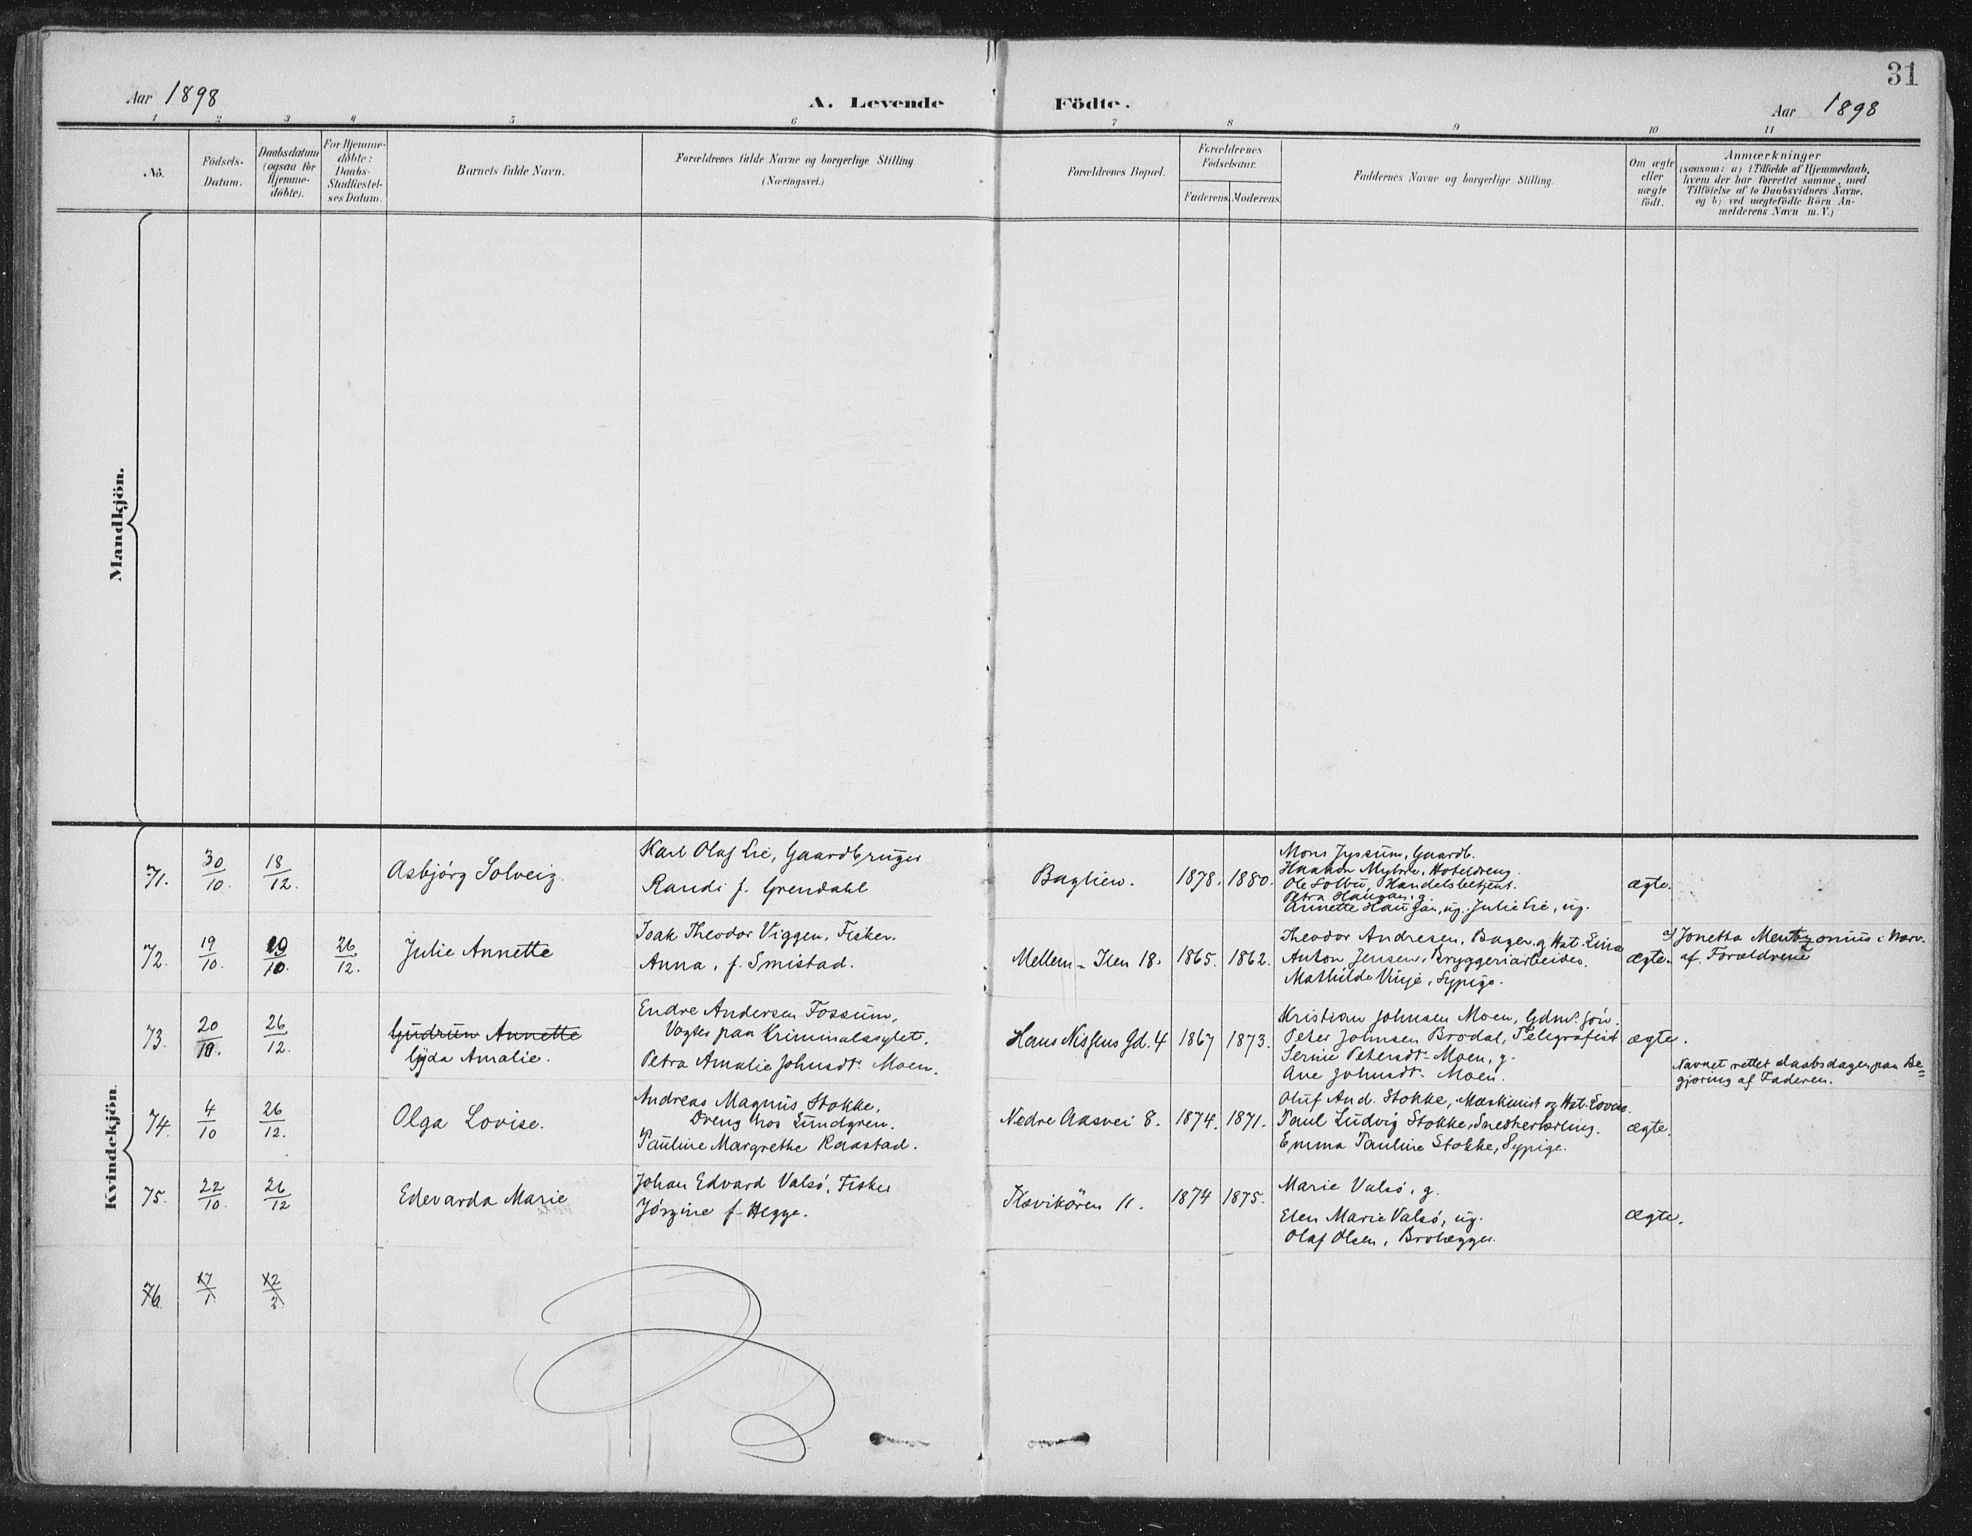 31
Aar 1898
A. Levende Födte.
Aar 1898
1 2 3 4 5 6 7 8 9 10 11
No.
Födsels-
Datum.
Daabsdatum
(ogsaa for
Hjemme-
döbte).
For Hjemme-
döbte:
Daabs-
Stadfæstel-
ses Datum.
Barnets fulde Navn.
Forældrenes fulde Navne og borgerlige Stilling.
(Næringsvei.)
Forældrenes Bopæl.
Forældrenes
Födselsaar.
Faderens. Moderens.
Faddernes Navne og borgerlige Stilling.
Om ægte
eller
uægte
födt.
Anmærkninger
(saasom: a) i Tilfælde af Hjemmedaab,
hvem der har forrettet samme, med
Tilföielse af to Daabsvidners Navne,
og b) ved uægtefödte Börn An-
melderens Navn m. V.)
Mandkjön.
Kvindekjön.
71.
30/10.
18/12.
Asbjørg Solveig.
Karl Olaf Lie, Gaardbruger
Randi f. Grendahl
Baglien.
1878. 1880.
Mons Jyssum, Gaardb.
Haakon Myhre, Hoteldreng.
Ole Solbu, Handelsbetjent.
Petra Haugan, g.
Annette Haugan, ug. Julie Lie, ug.
ægte.
72.
19/10.
29/10.
26/12.
Julie Annette
Isak Theodor Viggen, Fisker.
Anna, f. Smistad.
Mellem-Ilen 18.
1865. 1862.
Theodor Andresen, Bager og Hst. Lina
Anton Jensen, Bryggeriarbeider.
Mathilde Vinje, Sypige.
ægte.
a) Jonetta Mentzonius i Nærv.
af Forældrene
73.
20/10.
26/12.
Gudrun Annette
Gyda Amalie.
Endre Andersen Fossum,
Vogter paa Kriminalasylet.
Petra Amalie Johnsdt. Moen.
Hans Nissens Gd. 4
1867 1873.
Kristian Johnsen Moen, Gdms. søn.
Peter Johnsen Brodal, Telegrafist
Serine Petersdt. Moen, g.
Ane Johnsdt. Moen.
ægte.
Navnet rettet daabsdagen paa Be-
gjæring af Faderen.
74.
4/10
26/12.
Olga Lovise.
Andreas Magnus Stokke,
Dreng hos Lundgren.
Pauline Margrethe Raastad.
Nedre Aasvei 8.
1874. 1871.
Oluf And. Stokke, Maskinist og Hst. Lovise
Paul Ludvig Stokke, Snedkerlærling.
Emma Pauline Stokke, Sypige.
ægte.
75.
22/10.
26/12
Edevarda Marie
Johan Edvard Valsø, Fisker
Jørgine f. Hegge.
Ilsvikören 11.
1874 1875.
Marie Valsø, g.
Elen Marie Valsø, ug.
Olaf Olsen, Brolægger.
ægte.
76
17/1
12/2